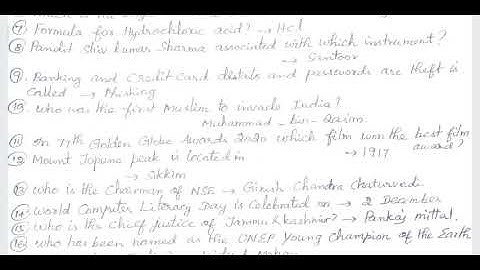 ⑦ Formula for Hydrochloric acid? → Hcl
⑧ Pandit Shiv kumar Sharma associated with which instrument?
→ Santoor
⑨ Banking and Credit card details and passwords are theft is
called → Phishing
⑩ Who was the first Muslim to invade India?
Muhammad-bin-Qasim.
⑪ In 77th Golden Globe Awards 2020 which film won the best film
award?
→ 1917
⑫ Mount Jopuno peak is located in
→ Sikkim
⑬ Who is the Chairman of NSE → Girish Chandra Chaturvedi.
⑭ World Computer Literacy Day is Celebrated on → 2 December
⑮ Who is the chief justice of Jammu & Kashmir? → Pankaj mittal.
⑯ who has been named as the UNEP Young Champion of the Earth